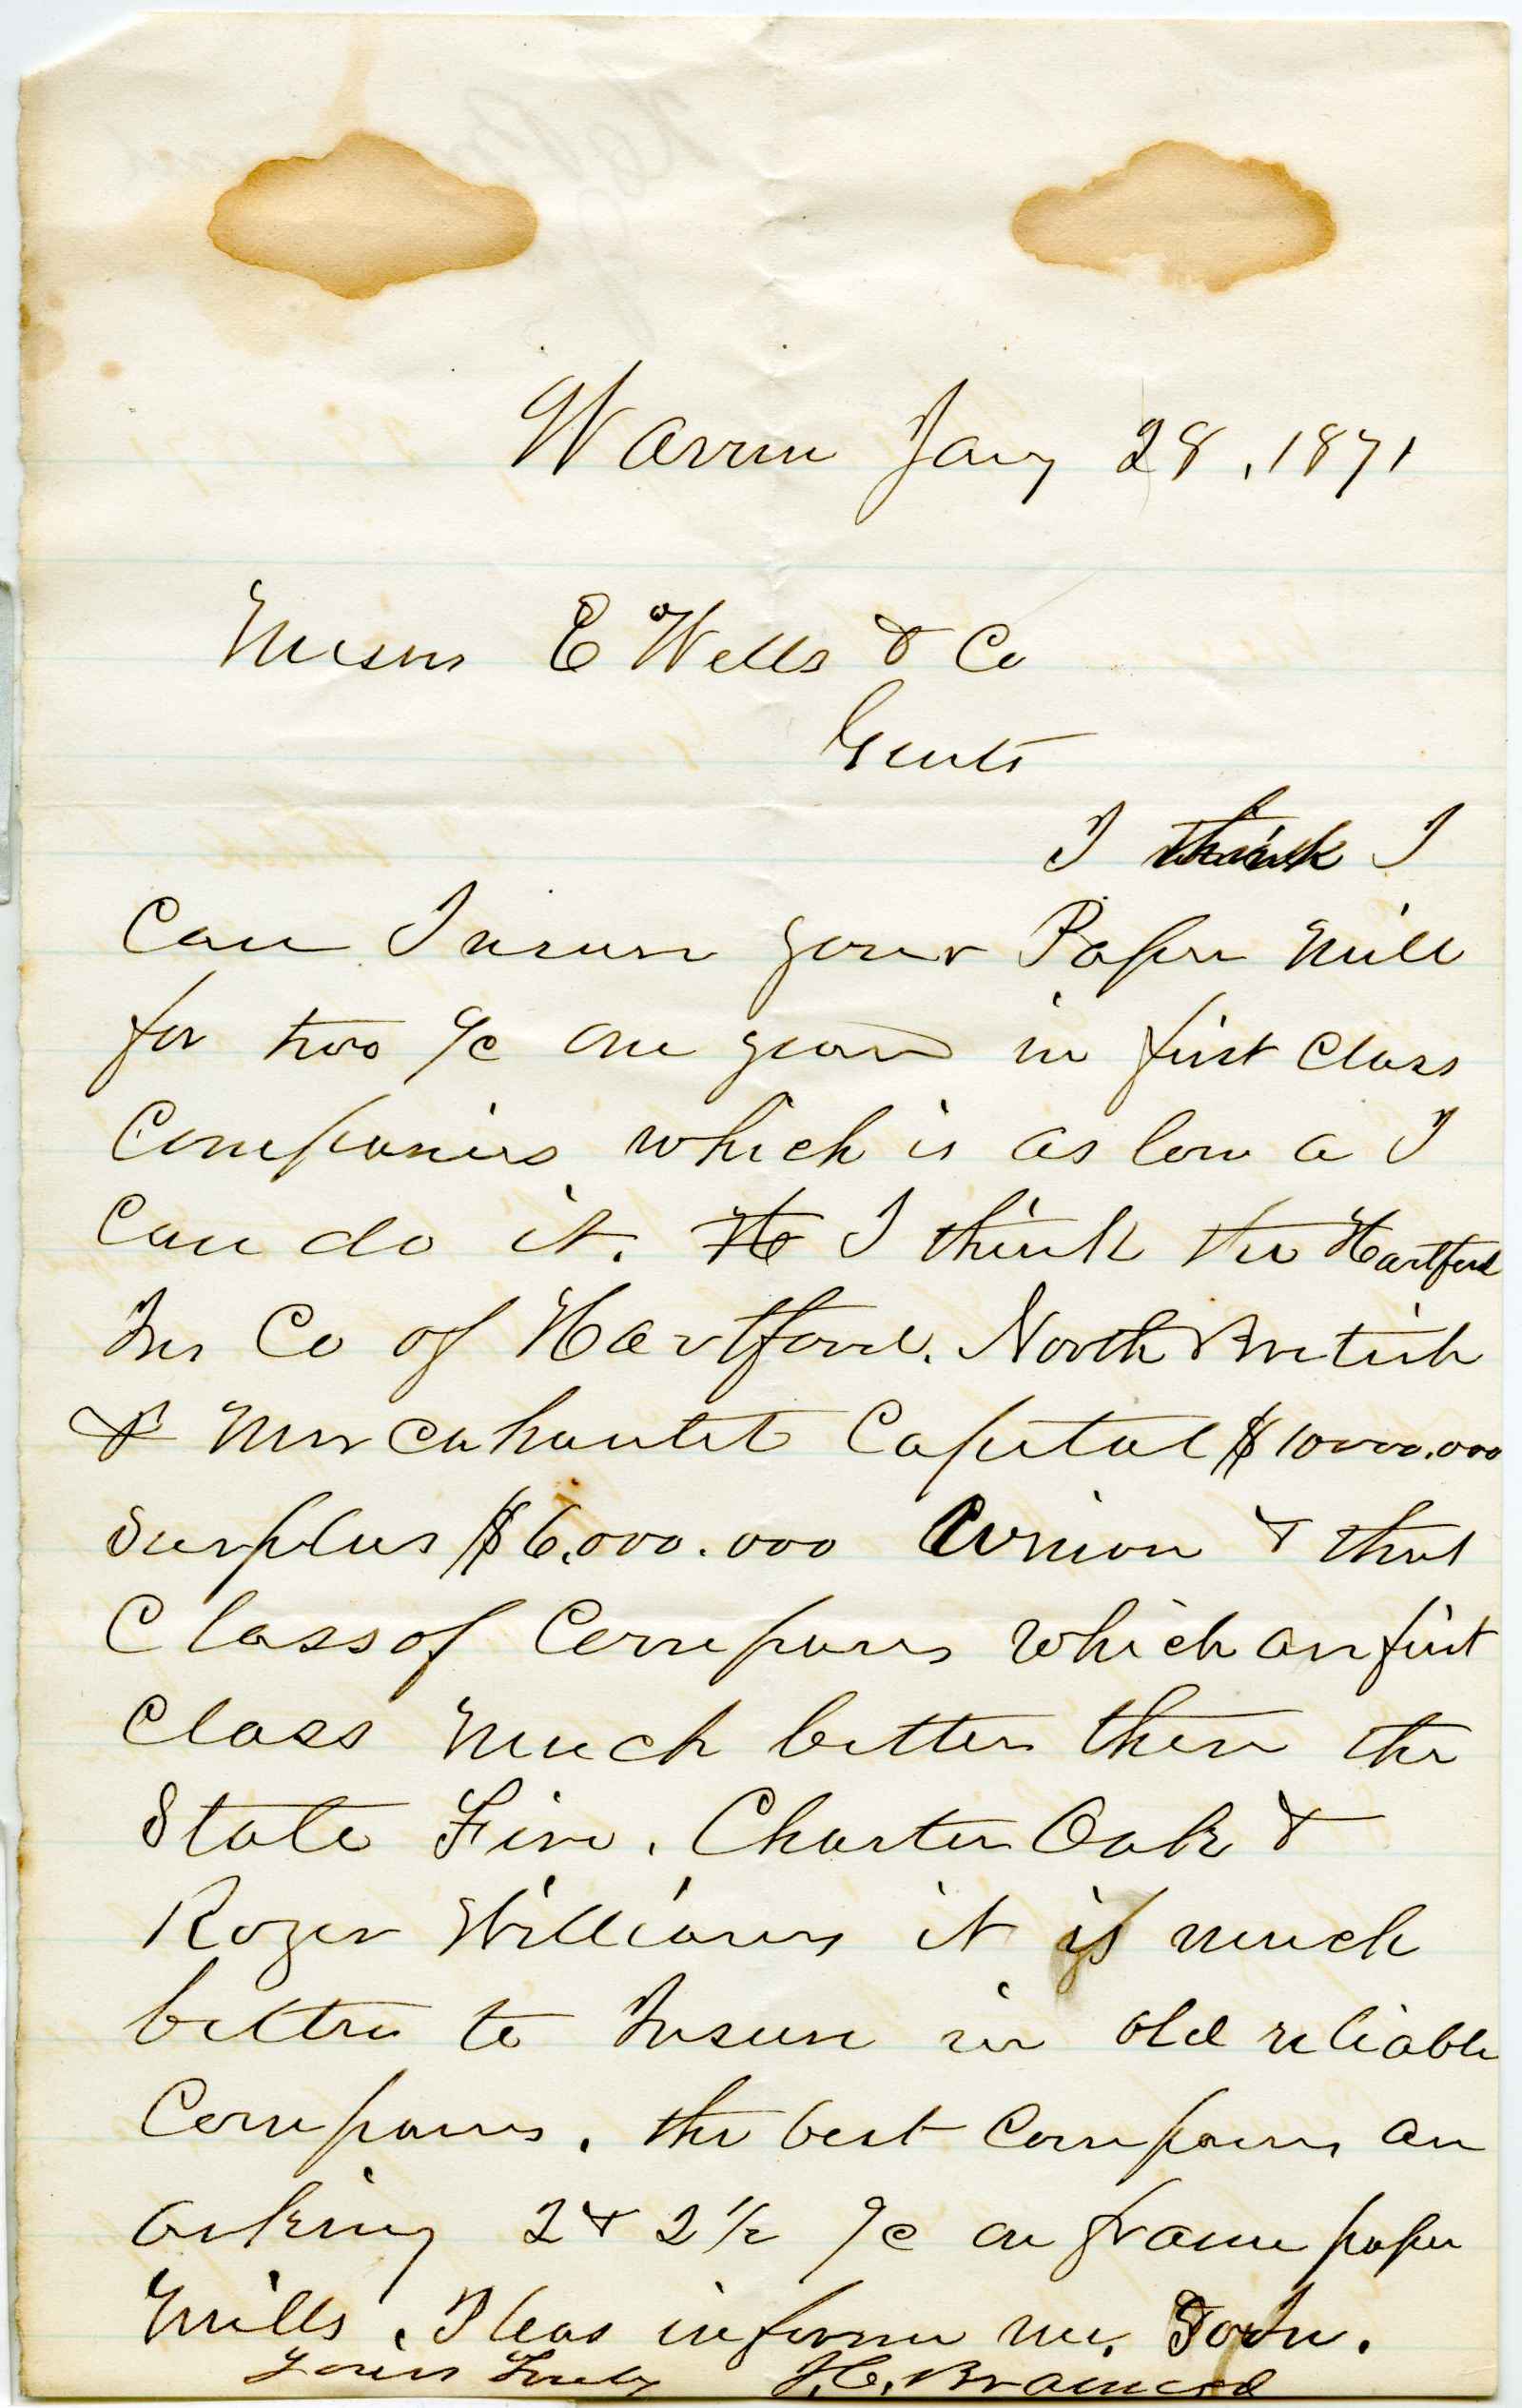 Warren Jany 28, 1871
Messrs E Wells & Co
Gents
I think I
Can Insure your Paper Mill
for two % one year in first Class
Companies which is as low a I
Can do it. I think the Hartford
Ins Co of Hartford. North British
& Capital $10000.000
Surplus $6,000.000 Union & that
Class of Companies which are first
Class much better then the
State Fire. Charter Oak &
Roger Williams it is much
better to Insure in old reliable
Companies. the best Companies are
asking 2 & 2 1/2 % on frame paper
Mills. Pleas inform me. Soon.
Yours Truly J.C. Brainerd